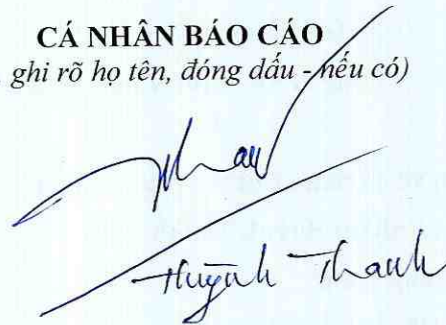 CÁ NHÂN BÁO CÁO
ghi rõ họ tên, đóng dấu - nếu có)
Huỳnh Thanh